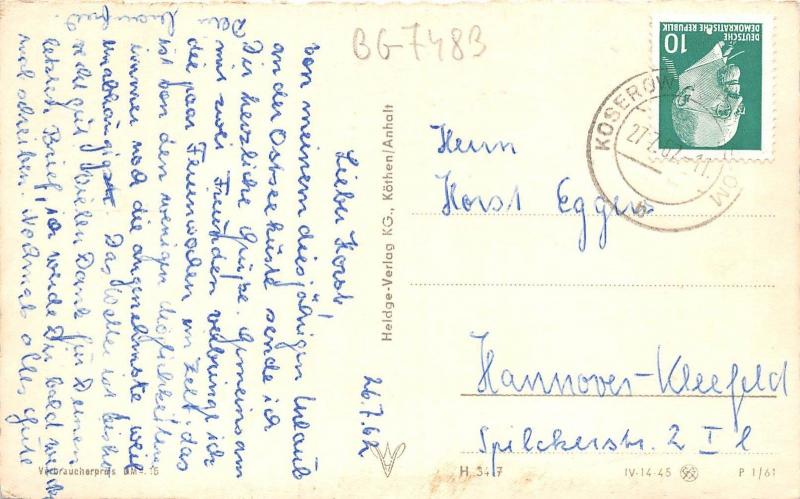 26.7.62
Lieber Horst!
Von meinem diesjährigen Urlaub
an der Ostseeküste sende ich
Dir herzliche Grüße. Gemeinsam
mit zwei Freunden verbringe ich
die paar Ferienwochen im Zelt; das
ist von den wenigen Möglichkeiten
immer noch die angenehmste weil
unabhängigste. Das Wetter ist bisher
recht gut. Vielen Dank für Deinen
letzten Brief, ich werde Dir bald wieder
mal schreiben. Nochmals alles Gute
Dein
BG-7483
Heldge-Verlag KG., Köthen/Anhalt
DEUTSCHE
DEMOKRATISCHE REPUBLIK
10
KOSEROW
Herrn
Horst Eggers
Hannover-Kleefeld
Spilckerstr. 2 I l
Verbraucherpreis DM -.15
H 3417
IV-14-45
P 1/61